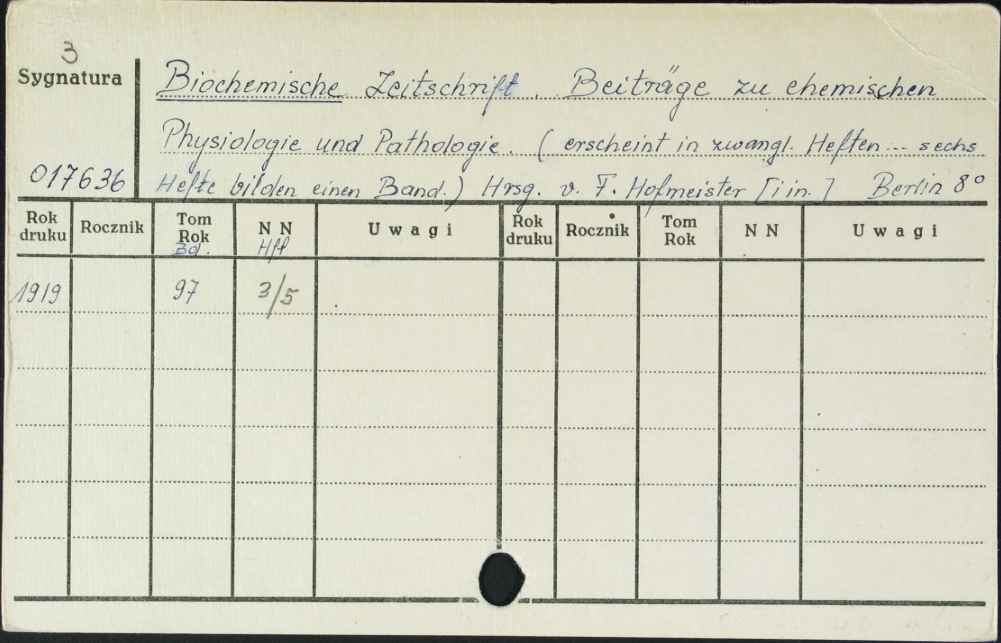 3
Sygnatura
Biochemische Zeitschrift. Beiträge zu chemischen
Physiologie und Pathologie. (erscheint in zwangl. Heften ... sechs
017636
Hefte bilden einen Band.) Hrsg. v. F. Hofmeister [i in.] Berlin 8°
Rok druku Rocznik Tom Rok Bd. N N Hft Uwagi Rok druku Rocznik Tom Rok N N Uwagi
1919 97 3/5